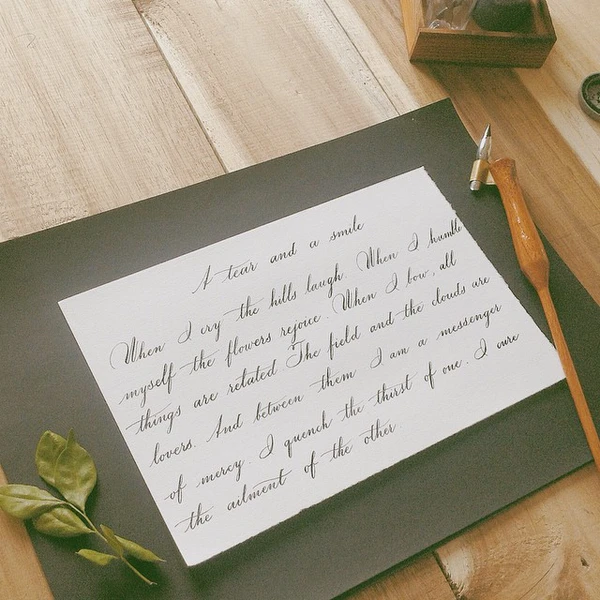 A tear and a smile
When I cry the hills laugh. When I humble
myself the flowers rejoice. When I bow, all
things are related The field and the clouds are
lovers. And between them I am a messenger
of mercy. I quench the thirst of one. I cure
the ailment of the other.